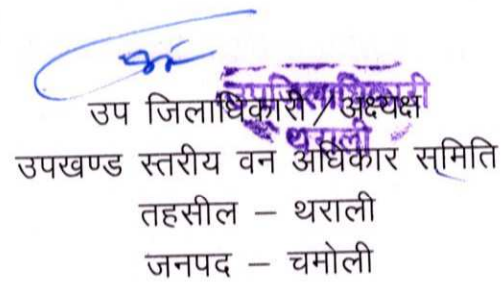 उपजिलाधिकारी
थराली
उप जिलाधिकारी / अध्यक्ष
उपखण्ड स्तरीय वन अधिकार समिति
तहसील – थराली
जनपद – चमोली